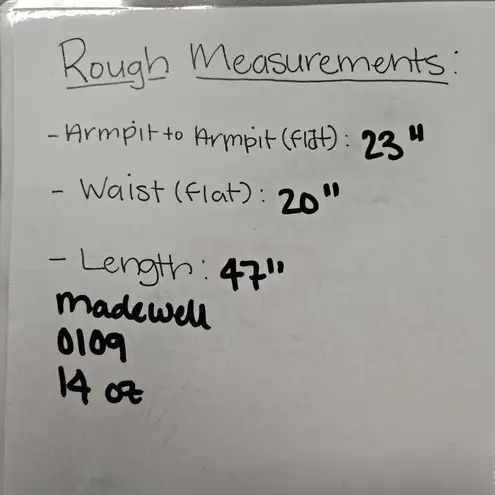 Rough Measurements:
- Armpit to Armpit (flat): 23"
- Waist (flat): 20"
- Length: 47"
madewell
0109
14 oz